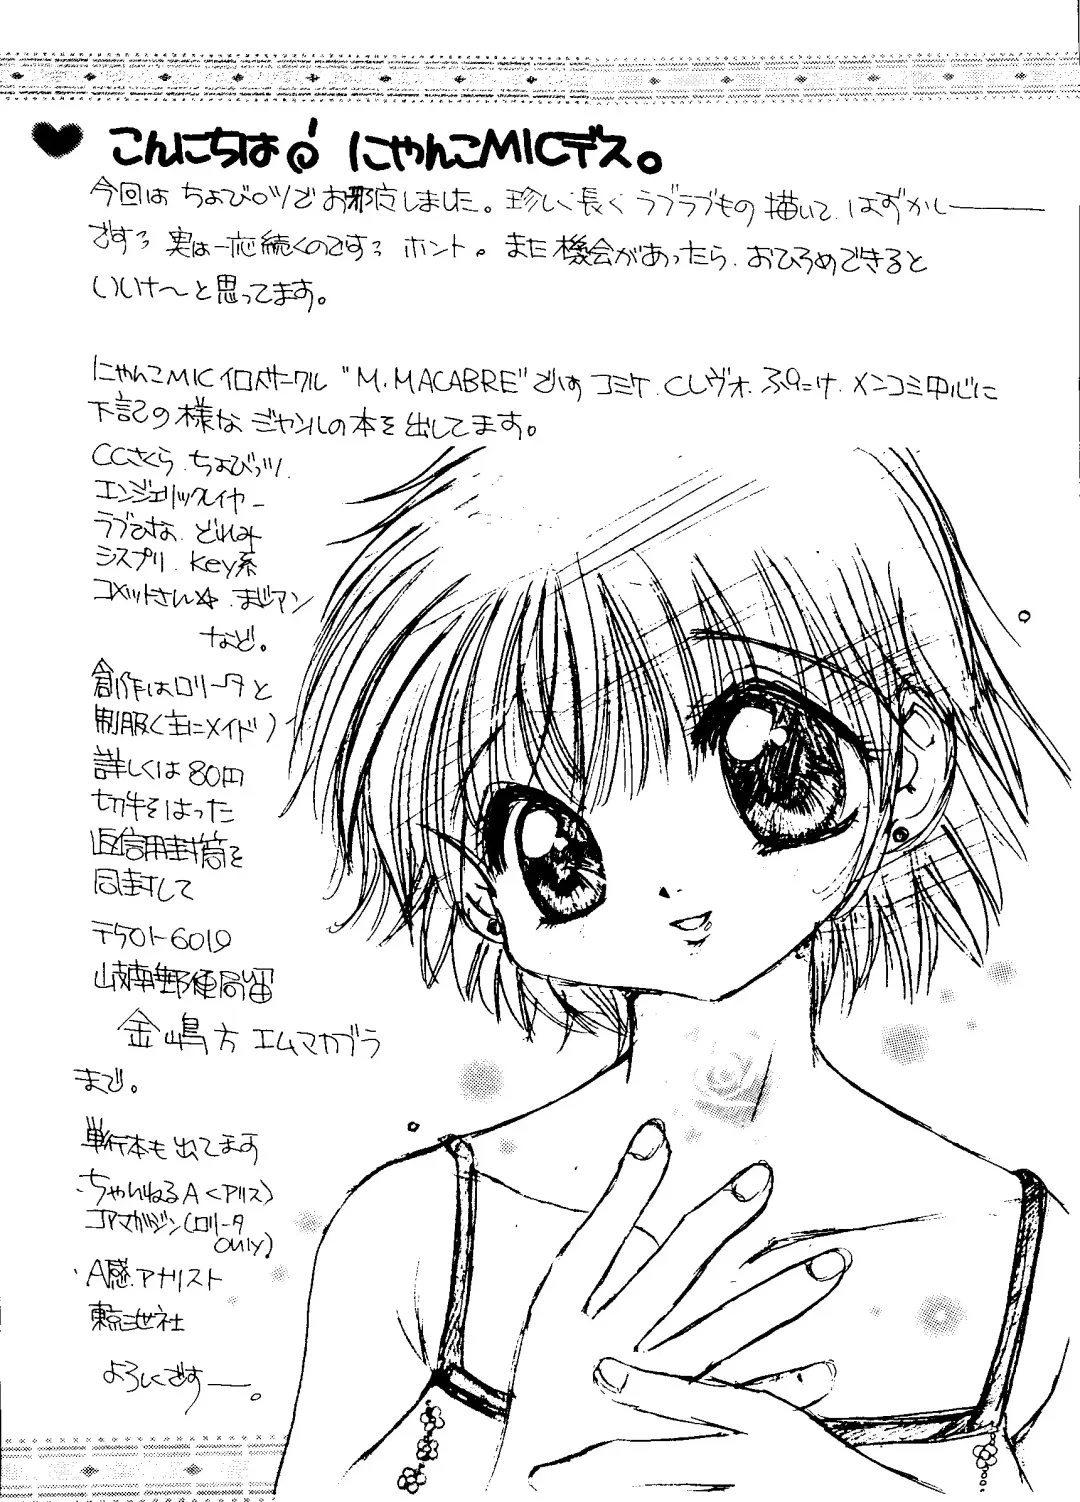 こんにちは! にゃんこMICデス。
今回は ちょびッツでお邪魔しました。珍しく長く ラブラブもの 描いて、はずかしーーー
ですう 実は一応続くのですう ホント。また機会があったら、おひろめできると
いいナ〜と思ってます。
にゃんこMIC 個人サークル "M.MACABRE" では コミケ、Cレヴォ、ぷにけ、メンコミ中心に
下記の様な ジャンルの本を出してます。
CCさくら、ちょびっツ、
エンジェリックレイヤー
ラブひな、どれみ
シスプリ、Key系
コメットさん☆、まジアン
など。
創作はロリータと
制服(主にメイド)
詳しくは80円
切手をはった
返信用封筒を
同封して
〒501-6019
岐南郵便局留
金嶋方 エムマカブラ
まで。
単行本も出てます
・ちゃいねるA<アリス>
コアマガジン(ロリータ
only)
・A感.アナリスト
東京三世社
よろしくですー。